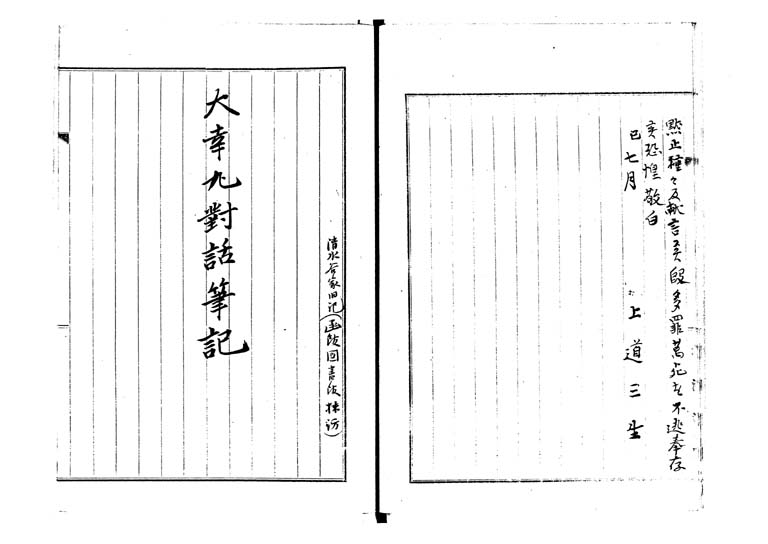 點止種々及献言候段多罪萬死も不逃奉存
候恐惶敬白
巳七月
上道三生
大幸丸對話筆記
清水谷家旧记(函館図書館抹河)